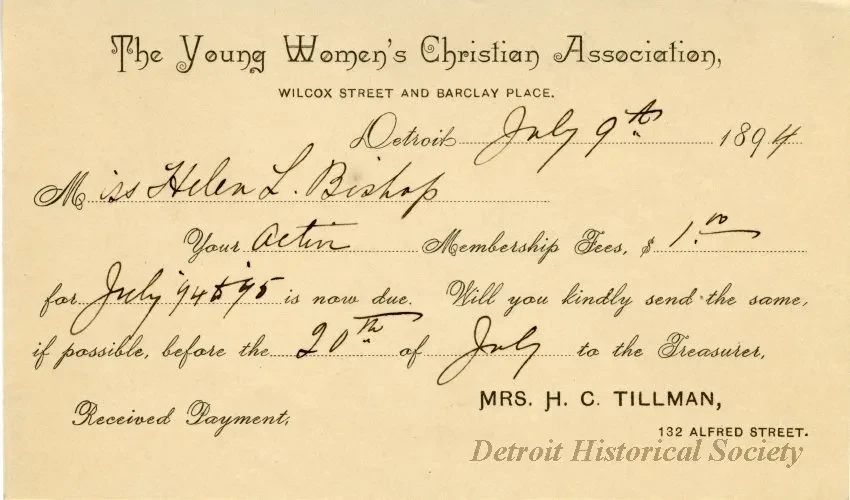 The Young Women's Christian Association,
WILCOX STREET AND BARCLAY PLACE.
Detroit July 9th 1894
Miss Helen L. Bishop
Your Active Membership Fees, $ 1.00
for July '94 to '95 is now due. Will you kindly send the same,
if possible, before the 20th of July to the Treasurer,
MRS. H. C. TILLMAN,
Received Payment,
132 ALFRED STREET.
Detroit Historical Society